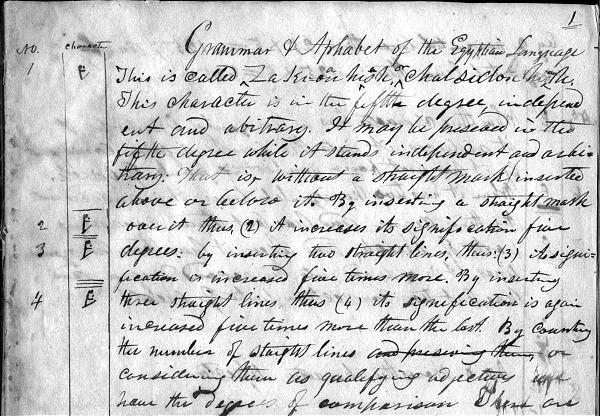 1
Grammar & Aphabet of the Egyptian Language
No. character
1 This is called Za Ki-oan hiash or chalsidon hish.
This character is in the fifth degree, independ
ent and abitrary. It may be preseved in the
fifth degree while it stands independent and arbi
trary: That is, without a straight mark inserted
above or below it. By inserting a straight mark
2 over it thus, (2) it increases its signification five
3 degrees: by inserting two straight lines, thus: (3) its signi-
fication is increased five times more. By inserting
4 three straight lines thus (4) its signification is again
increased five times more than the last. By counting
the number of straight lines and preseving them or
considering them as qualifying adjectives
have the degrees of comparison There are